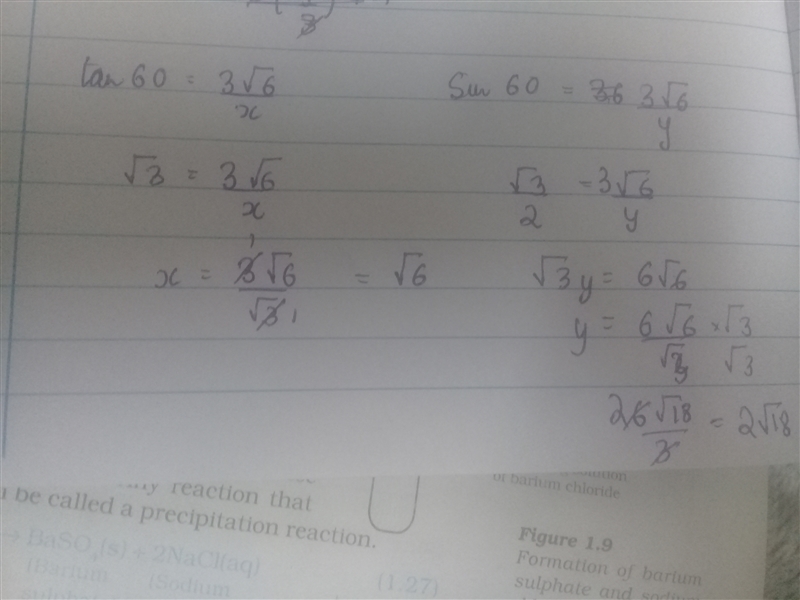 3
tan 60 = 3√6/x
Sin 60 = 3√6/y
√3 = 3√6/x
√3/2 = 3√6/y
x = 3√6/√3 = √6
1
1
√3 y = 6√6
y = 6√6/√3 × √3/√3
2 6√18/3 = 2√18
reaction that
be called a precipitation reaction.
→ BaSO₄(s) + 2NaCl(aq)
(Barium (Sodium
(1.27)
of barium chloride
Figure 1.9
Formation of barium
sulphate and